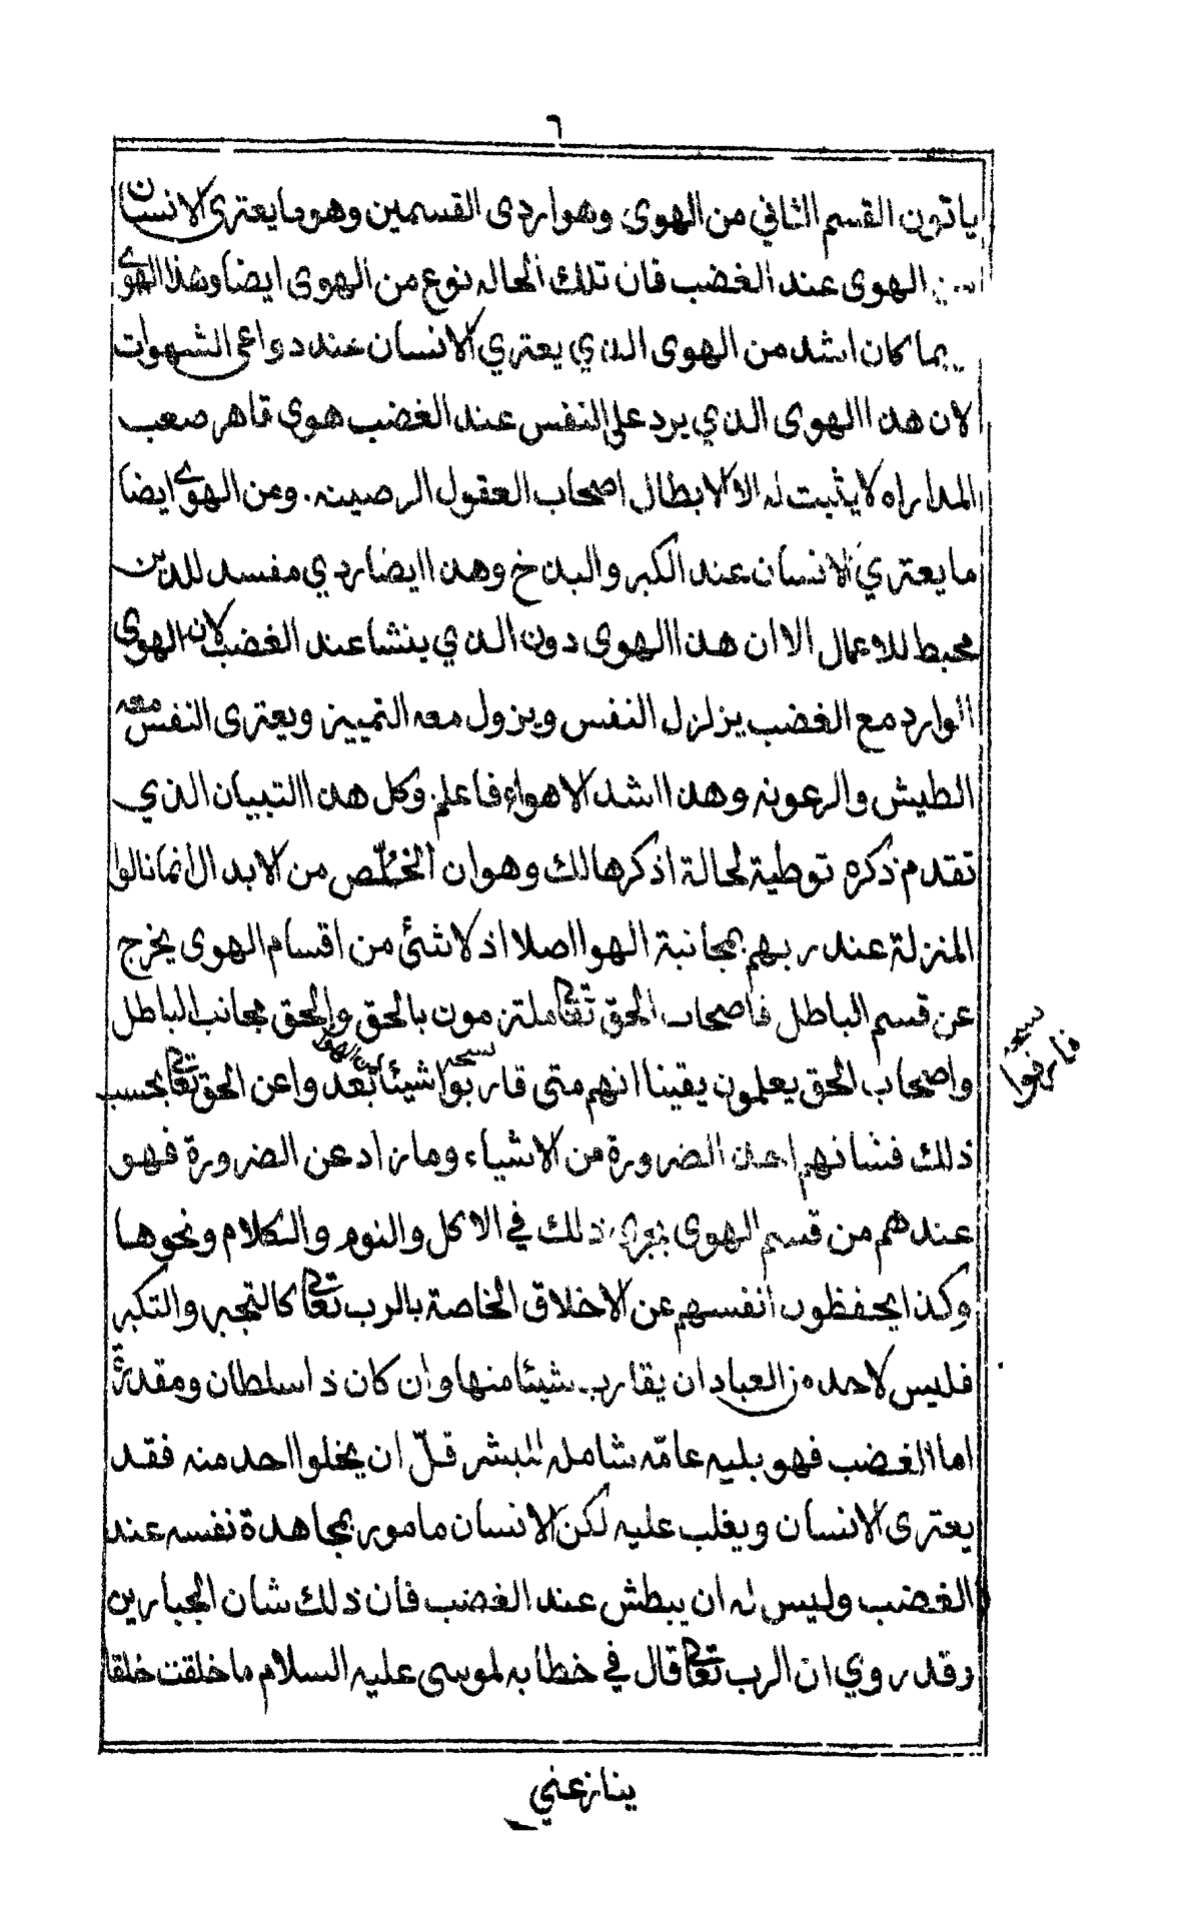 ٦
ياتون القسم الثاني من الهوى وهو اردى القسمين وهو ما يعترى الانسان
من الهوى عند الغضب فان تلك الحاله نوع من الهوى ايضا وهذا الهوى
بما كان اشد من الهوى الذي يعتري الانسان عند دواعى الشهوات
لان هذا الهوى الذي يرد على النفس عند الغضب هوى قاهر صعب
المداراه لا يثبت له الا الابطال اصحاب العقول الرصينه. ومن الهوى ايضا
ما يعتري الانسان عند الكبر والبذخ وهذا ايضا ردي مفسد للدين
محبط للاعمال الا ان هذا الهوى دون الذي ينشا عند الغضب لان الهوى
الوارد مع الغضب يزلزل النفس ويزول معه التمييز ويعترى النفس معه
الطيش والرعونه وهذا اشد الاهواء فاعلم وكل هذا التبيان الذي
تقدم ذكره توطية لحالة اذكرها لك وهو ان الخُلّص من الابدال انما نالوا
المنزلة عند ربهم بمجانبة الهوا اصلا اذ لا شئ من اقسام الهوى يخرج
عن قسم الباطل فاصحاب الحق تعالى ملتزمون بالحق والحق مجانب الباطل
واصحاب الحق يعلمون يقينا انهم متى قاربوا شيئا من الهوا بعدوا عن الحق تعالى بحسب
نسخه
نسخه
فارقوا
ذلك فشانهم اخذ الضرورة من الاشياء وما زاد عن الضرورة فهو
عندهم من قسم الهوى يجرى ذلك في الاكل والنوم والكلام ونحوها
وكذا يحفظون انفسهم عن الاخلاق الخاصة بالرب تعالى كالتجبر والتكبر
فليس لاحد من العباد ان يقارب شيئا منها وان كان ذا سلطان ومقدرة
اما الغضب فهو بليه عامّه شامله للبشر قلّ ان يخلوا احد منه فقد
يعترى الانسان ويغلب عليه لكن الانسان مامور بمجاهدة نفسه عند
الغضب وليس له ان يبطش عند الغضب فان ذلك شان الجبارين
وقد روي ان الرب تعالى قال في خطابه لموسى عليه السلام ما خلقت خلقا
ينازعني